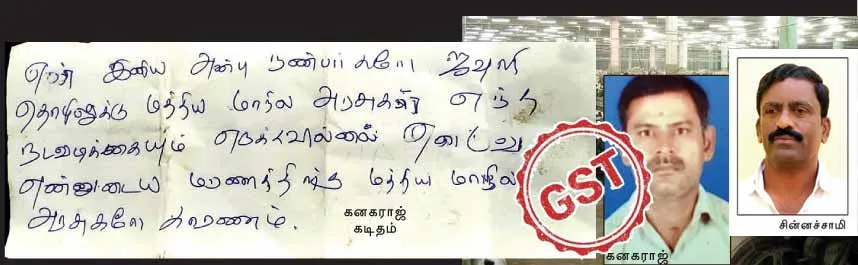 என் இனிய அன்பு நண்பர்களே ஜவுளி
தொழிலுக்கு மத்திய மாநில அரசுகள் எந்த
நடவடிக்கையும் எடுக்கவில்லை எனவே
என்னுடைய மரணத்திற்கு மத்திய மாநில
அரசுகளே காரணம்.
கனகராஜ்
கடிதம்
GST
கனகராஜ்
சின்னச்சாமி